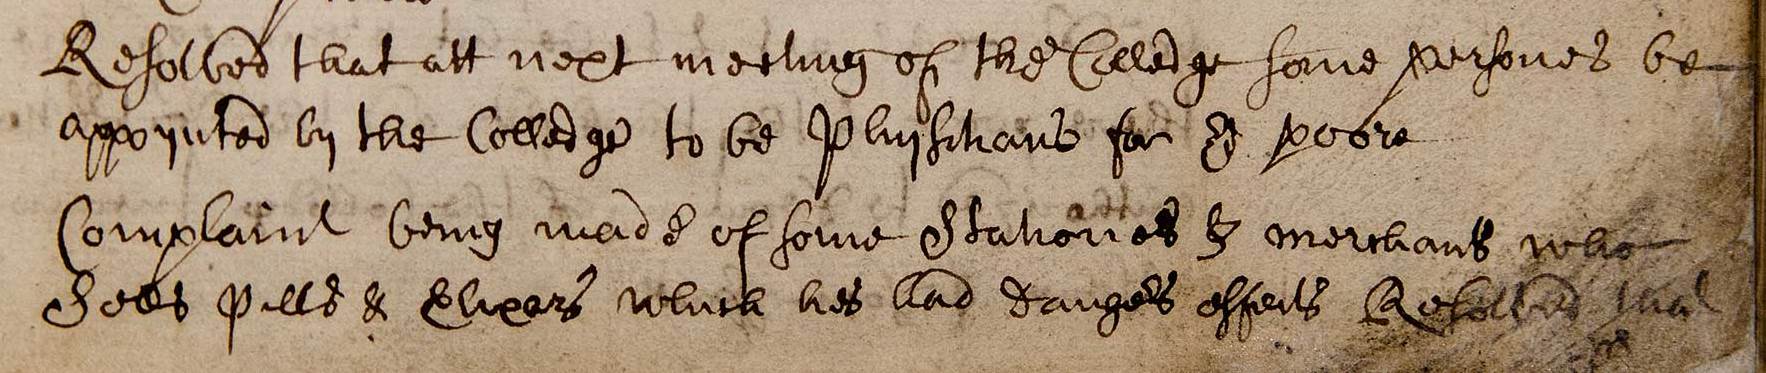 Resolved that att next meeting of the Colledge some persones be
appoynted by the Colledge to be Physitians for ye poore
Complaint being made of some Stationes & merchants who
Sells pills & Elixers which hes had dangers effects Resolved that